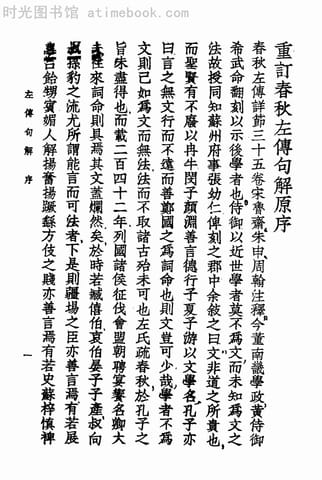 时光图书馆 atimebook.com
重訂春秋左傳句解原序
春秋左傳詳節三十五卷宋魯齋朱申周翰注釋今董南畿學政黃侍御
希武命翻刻以示後學者也侍御以近世學者莫不為文而未知為文之
法故授同知蘇州府事張幼仁俾刻之郡中余敘之曰文非道之所貴也
而聖賢有不廢以冉牛閔子顏淵善言德行子夏子游以文學名孔子亦
曰言之無文行而不遠而善鄭國之為詞命也則文豈可少哉學者不為
文則已如為文而無法法而不取諸古殆未可也左氏疏春秋於孔子之
旨殊盡得也而載二百四十二年列國諸侯征伐會盟朝聘宴饗名卿大
夫往來詞命則具焉其文蓋爛然矣於時若臧僖伯哀伯晏子子產叔向
孫豹之流尤所謂能言而可法者下是則疆場之臣亦善言焉有若展
呂飴甥賓媚人解揚奮揚蹶繇方伎之賤亦善言焉有若史蘇梓慎裨
左傳句解 序
一